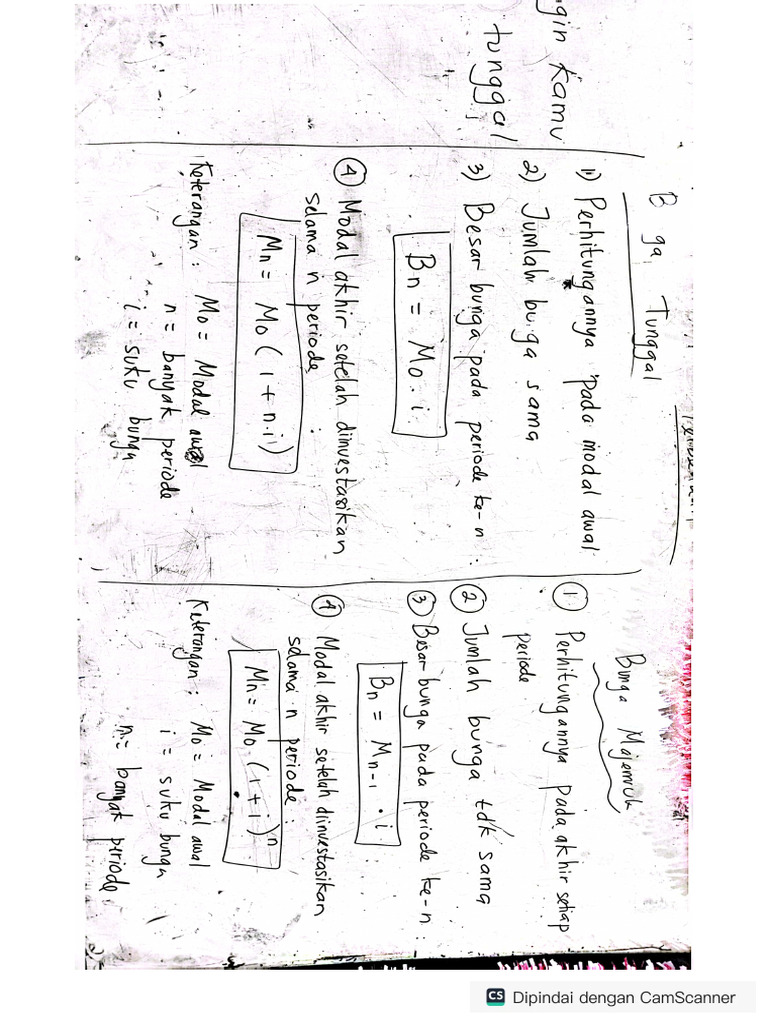 gin kamu
tunggal
B ga Tunggal
1) Perhitungannya pada modal awal
2) Jumlah bunga sama
3) Besar bunga pada periode ke-n :
Bn = Mo . i
4 Modal akhir setelah diinvestasikan
selama n periode :
Mn = Mo ( 1 + n.i )
Keterangan : Mo = Modal awal
n = banyak periode
i = suku bunga
Bunga Majemuk
1 Perhitungannya pada akhir setiap
periode
2 Jumlah bunga tdk sama
3 Besar bunga pada periode ke-n :
Bn = Mn-1 . i
4 Modal akhir setelah diinvestasikan
selama n periode :
Mn = Mo . ( 1 + i )^n
Keterangan : Mo = Modal awal
i = suku bunga
n = banyak periode
CS Dipindai dengan CamScanner